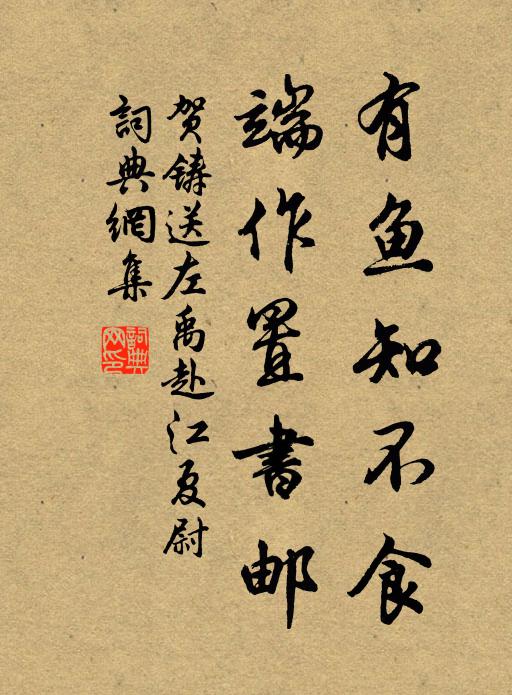 有鱼知不食
端作置書邮
贺鑄送左禹赴江夏尉
詞典網集
詞典网印